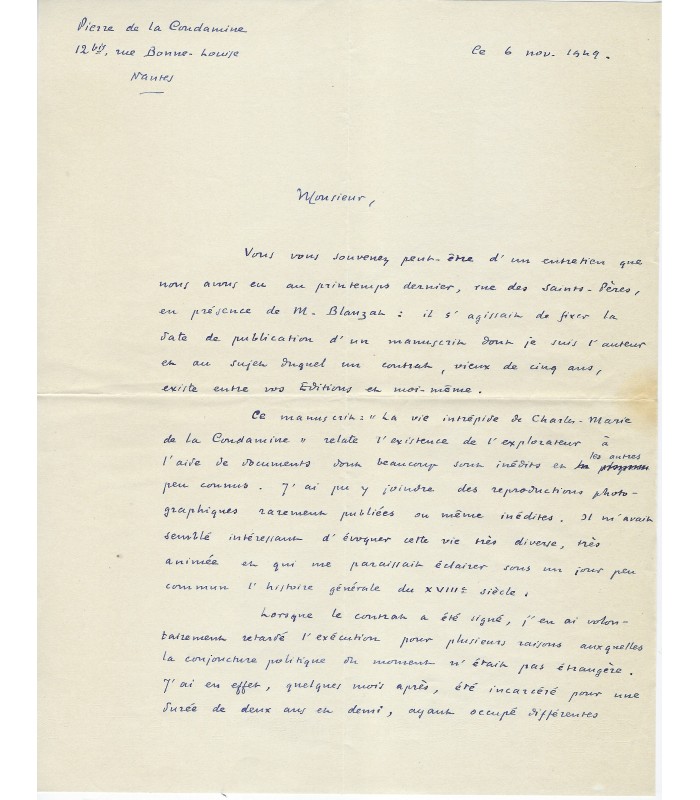 Pierre de la Condamine
12 bis, rue Bonne-Louise
Nantes
Le 6 nov. 1949.
Monsieur,
Vous vous souvenez peut-être d'un entretien que
nous avons eu au printemps dernier, rue des Saints-Pères,
en présence de M. Blanzat : il s'agissait de fixer la
date de publication d'un manuscrit dont je suis l'auteur
et au sujet duquel un contrat, vieux de cinq ans,
existe entre vos Editions et moi-même.
Ce manuscrit : "La vie intrépide de Charles-Marie
de la Condamine" relate l'existence de l'explorateur à
l'aide de documents dont beaucoup sont inédits et les autres
peu connus. J'ai pu y joindre des reproductions photo-
graphiques rarement publiées ou même inédites. Il m'avait
semblé intéressant d'évoquer cette vie très diverse, très
animée et qui me paraissait éclairer sous un jour peu
commun l'histoire générale du XVIIIe siècle.
Lorsque le contrat a été signé, j'en ai volon-
tairement retardé l'exécution pour plusieurs raisons auxquelles
la conjoncture politique du moment n'était pas étrangère.
J'ai en effet, quelques mois après, été incarcéré pour une
durée de deux ans et demi, ayant occupé différentes